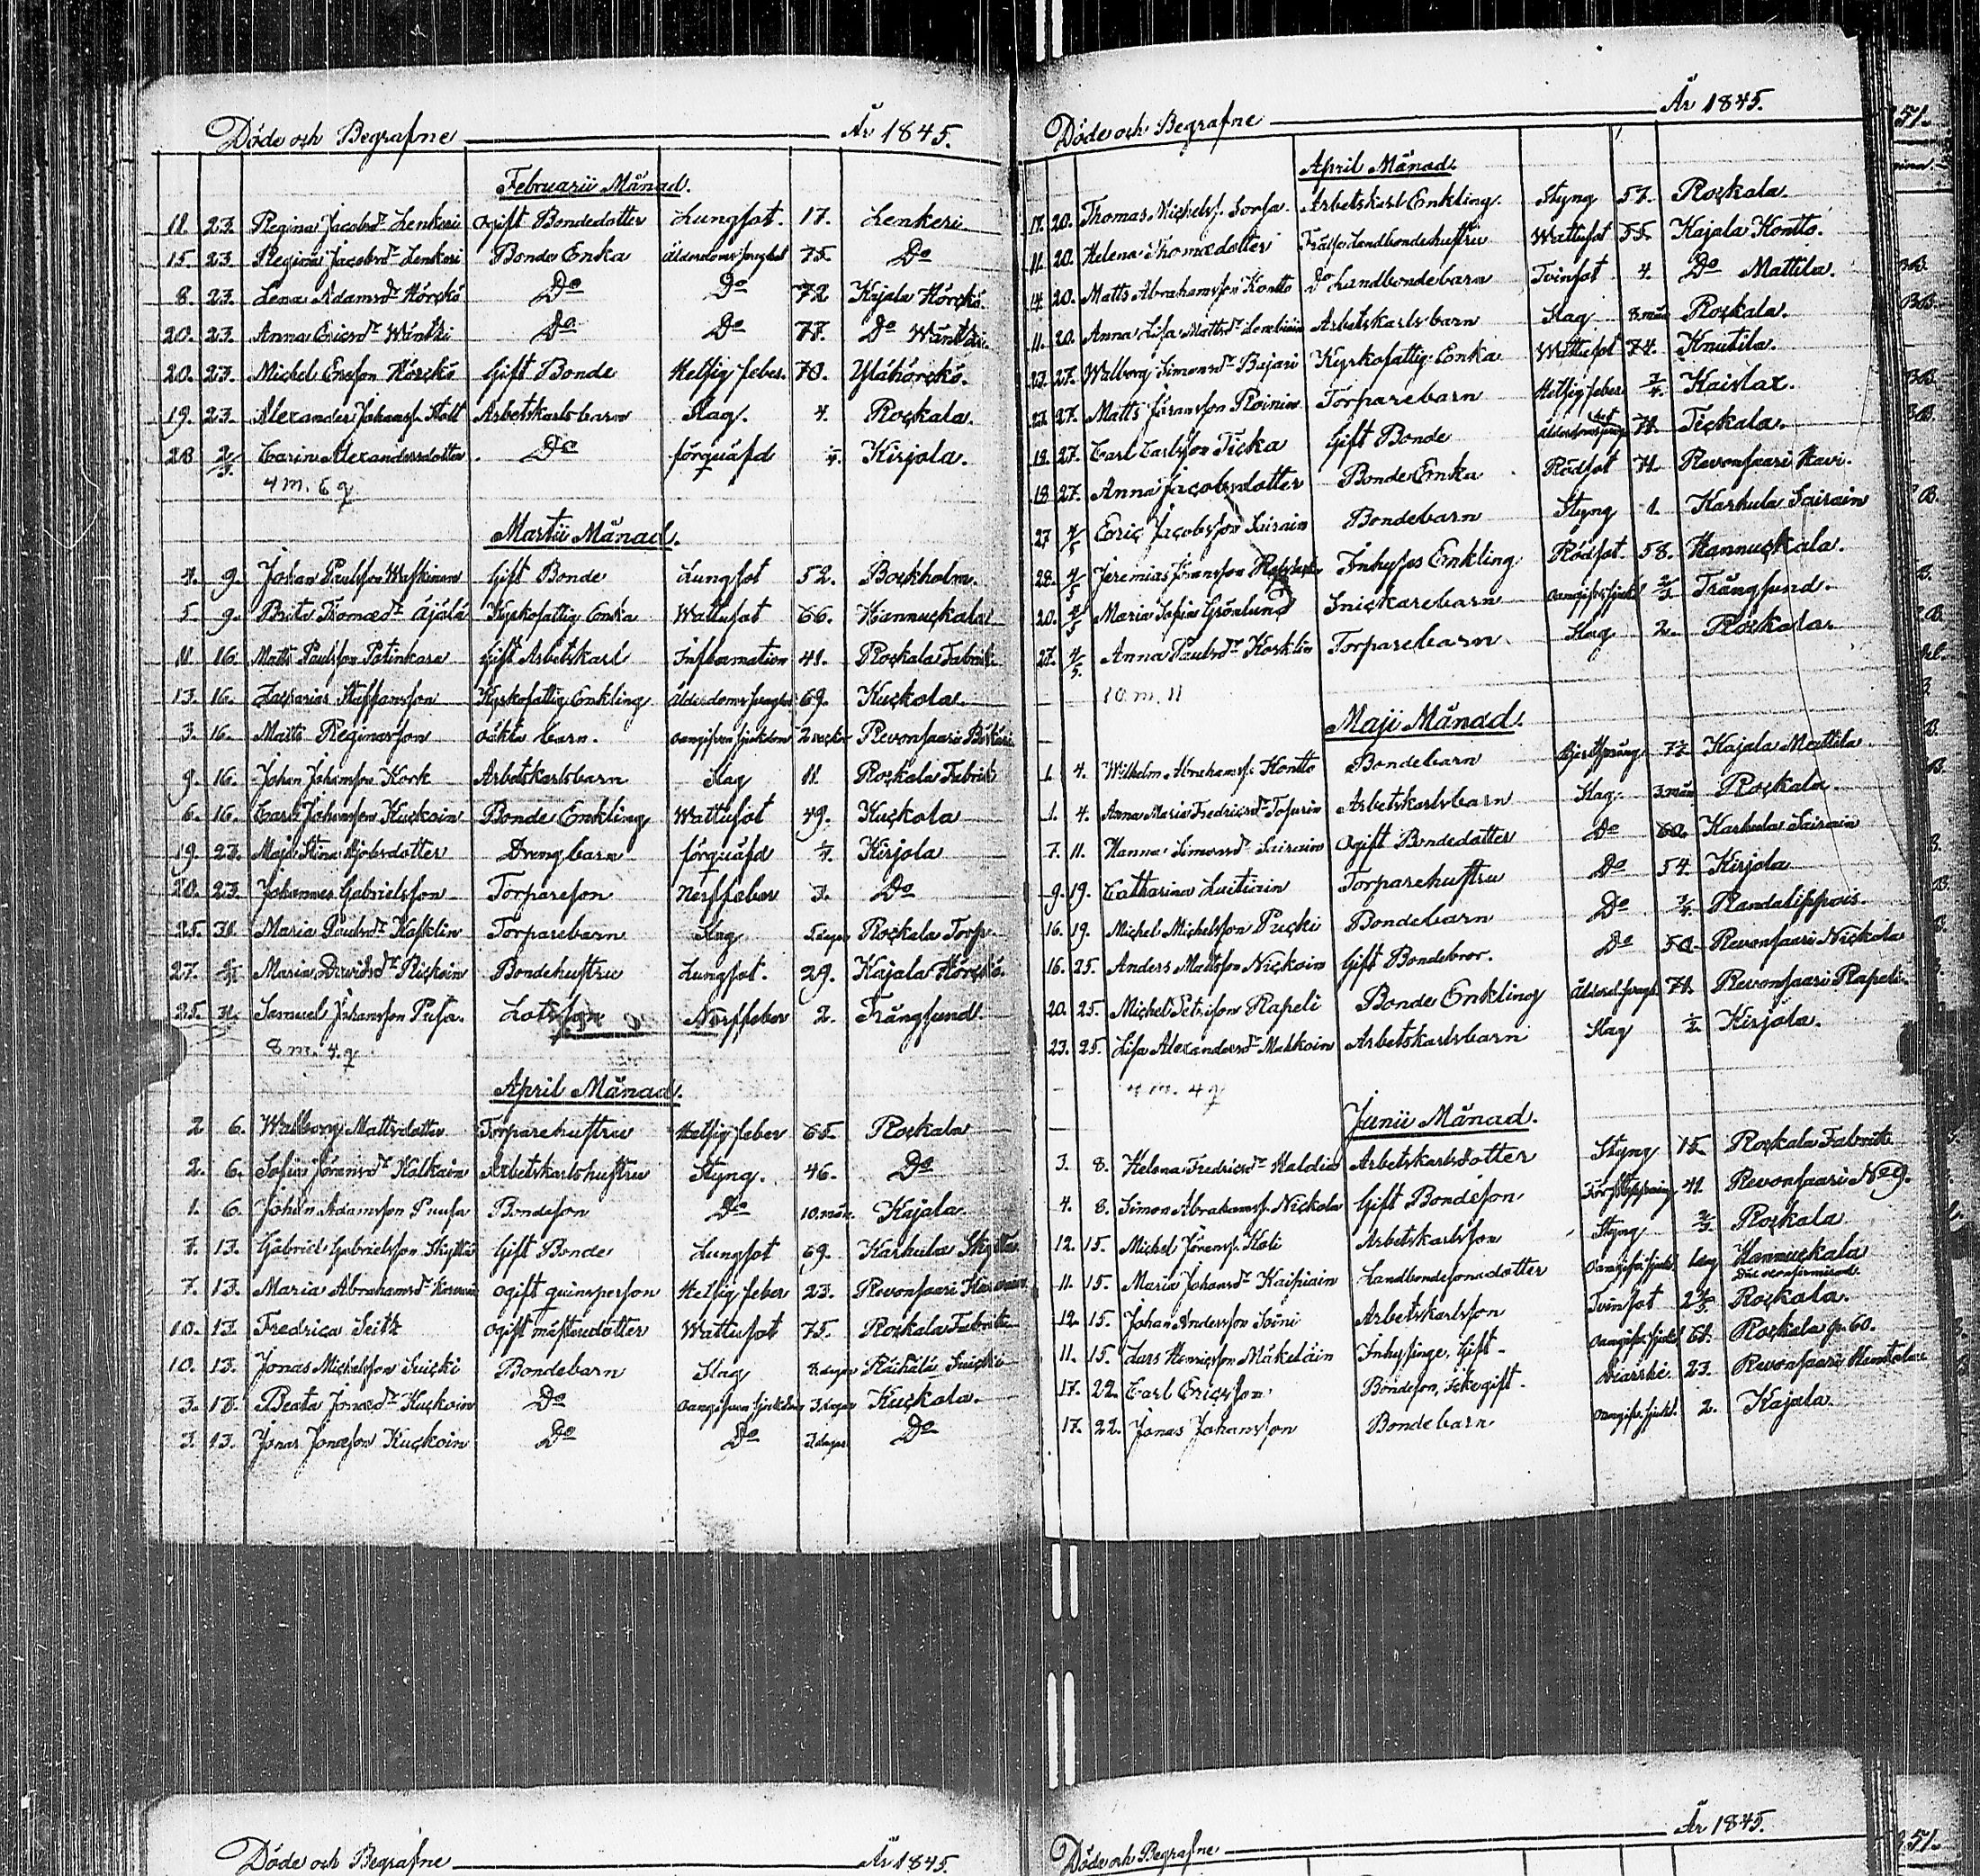 Döde och Begrafne År 1845.
Februarii Månad.
11. 23. Regina Jacobsdr Lenkeri Ogift Bondedotter Lungsot. 17. Lenkeri
15. 23. Regina Jacobsdr Lenkeri Bonde Enka Ålderdoms 75. Do
8. 23. Lena Adamsdr Hörckö Do Do 72 Kajala Hörckö
20. 23. Anna Ericsdr Wäntti Do Do 77. Do Wäntti
20. 23. Michel Hörckö Gift Bonde Hetsig feber. 70. Ylähörckö.
19. 23. Alexander Johansf. Arbetskarlsbarn Slag. 4. Rockala.
28 2/3. Carin Alexandersdotter Do förquäfd Kirjola.
4 m. 6 q
Martii Månad.
4. 9. Johan Paulsson Gift Bonde Lungsot 52. Bockholm.
5. 9. Brita Thomædr Äjälä Kyrkofattig Enka Wattusot 66. Hannuckala
11. 16. Matts Paulsson Patinkara Gift Arbetskarl Inflamation 41. Rockala Fabrik
13. 16. Zacharias Staffansson Kyrkofattig Enkling 69. Kuckola.
3. 16. Matts Reginasson Oäkta barn. Oangifven sjukdom 2 veckor Revonsaari
9. 16. Johan Johansson Kork Arbetskarlsbarn Slag 11. Rockala Fabrik
6. 16. Carl Johansson Kuckoin Bonde Enkling Wattusot 49. Kuckola
19. 23. Maja Stina Drengbarn förquäfd Kirjola
20. 23. Johannes Gabrielsson Torpareson Nerffeber 3. Do
25. 31. Maria Paulsdr Torparebarn Slag 5 dagar Rockala Torp.
27. Maria Davidsdr Bondehustru Lungsot. 29. Kajala Hörckö.
25. 31. Samuel Johansson Pusa. Lotsson Nerffeber 2. Trångsund.
8 m. 4. q
April Månad.
2 6. Walborg Mattsdotter Torparehustru Hetsig feber 65. Rockala
2. 6. Sofia Göransdr Arbetskarlshustru Styng. 46. Do
1. 6. Johan Adamsson Puusa Bondeson Do 10 mån. Kajala.
7. 13. Gabriel Gabrielsson Skyttä Gift Bonde Lungsot 69. Karhula Skyttä
7. 13. Maria Abrahamsdr Ogift quinsperson Hetsig feber 23. Revonsaari
10. 13. Fredrica Seitz Ogift mästaredotter Wattusot 75. Rockala Fabrik
10. 13. Jonas Michelsson Suicki Bondebarn Slag 8 dagar Suicki
3. 13. Beata Jonædr Kuckoin Do Oangifven sjukdom 3 dagar Kuckola.
3. 13. Jonas Jonæson Kuckoin Do Do 3 dagar Do
Döde och Begrafne År 1845.
April Månad.
17. 20. Thomas Michelsf. Sorsa. Arbetskarl Enkling. Styng 57. Rockala.
11. 20. Helena Thomædotter Frälse Landbondehustru Wattusot 55. Kajala Kontto.
14. 20. Matts Abrahamsson Kontto Do Landbondebarn Tvinsot 4. Do Mattila.
11. 20. Anna Lisa Mattsdr Arbetskarls barn Slag 8 mån Rockala.
23. 27. Walborg Simonsdr Bajari Kyrkofattig Enka Wattusot 74. Knutila.
23. 27. Matts Göransson Roinin Torparebarn Hetsig feber 3/4. Kaislax.
19. 27. Carl Carlsson Ticka Gift Bonde 71. Tickala.
18 27. Anna Jacobsdotter Bonde Enka Rödsot 71. Revonsaari Havi.
27 4/5 Eric Jacobsson Sairain Bondebarn Styng 1. Karhula Sairain
28. 4/5 Jeremias Göransson Inhyses Enkling Rödsot 58. Hannuckala.
20. 4/5 Maria Sofia Grönlund Snickarebarn Oangifv. sjukd. Trångsund.
27. 4/5 Anna Paulsdr Torparebarn Slag 2. Rockala.
10 m. 11
Maji Månad.
1. 4. Wilhelm Abrahamsf. Kontto Bondebarn Kajala Mattila.
1. 4. Anna Maria Fredricsdr Arbetskarlsbarn Slag. 3 mån Rockala.
7. 11. Hanna Simonsdr Sairain Ogift Bondedotter Do 60. Karhula Sairain
9. 19. Catharina Torparehustru Do 54. Kirjola
16. 19. Michel Michelsson Pucki Bondebarn Do 3/4. Randalippois.
16. 25. Anders Mattsson Nickoin Gift Bondebror. Do 50. Revonsaari Nickola
20. 25. Michel Petrisson Rapeli Bonde Enkling 71. Revonsaari Rapeli.
23. 25. Lisa Alexandersdr Mahkoin Arbetskarlsbarn Slag 1/2. Kirjola.
4 m. 4 q
Junii Månad.
3. 8. Helena Fredricsdr Arbetskarlsdotter Styng 15. Rockala Fabrik
4. 8. Simon Abrahamsf. Nickola Gift Bondeson 41. Revonsaari No 9.
12. 15. Michel Göransf. Koli Arbetskarlsson Styng Rockala
11. 15. Maria Johansdr Kaipiain Landbondesonsdotter Oangifv. sjukd. Hannuckala
12. 15. Johan Andersson Soini Arbetskarlsson Tvinsot Rockala.
11. 15. Lars Henricsson Mäkeläin Inhysinge, Gift Oangifv. sjukd. 61. Rockala
17. 22. Carl Ericsson Bondeson, icke gift. 23. Revonsaari
17. 22. Jonas Johansson Bondebarn Oangifv. sjukd. 2. Kajala.
51.
Döde och Begrafne År 1845.
Döde och Begrafne År 1845.
51.